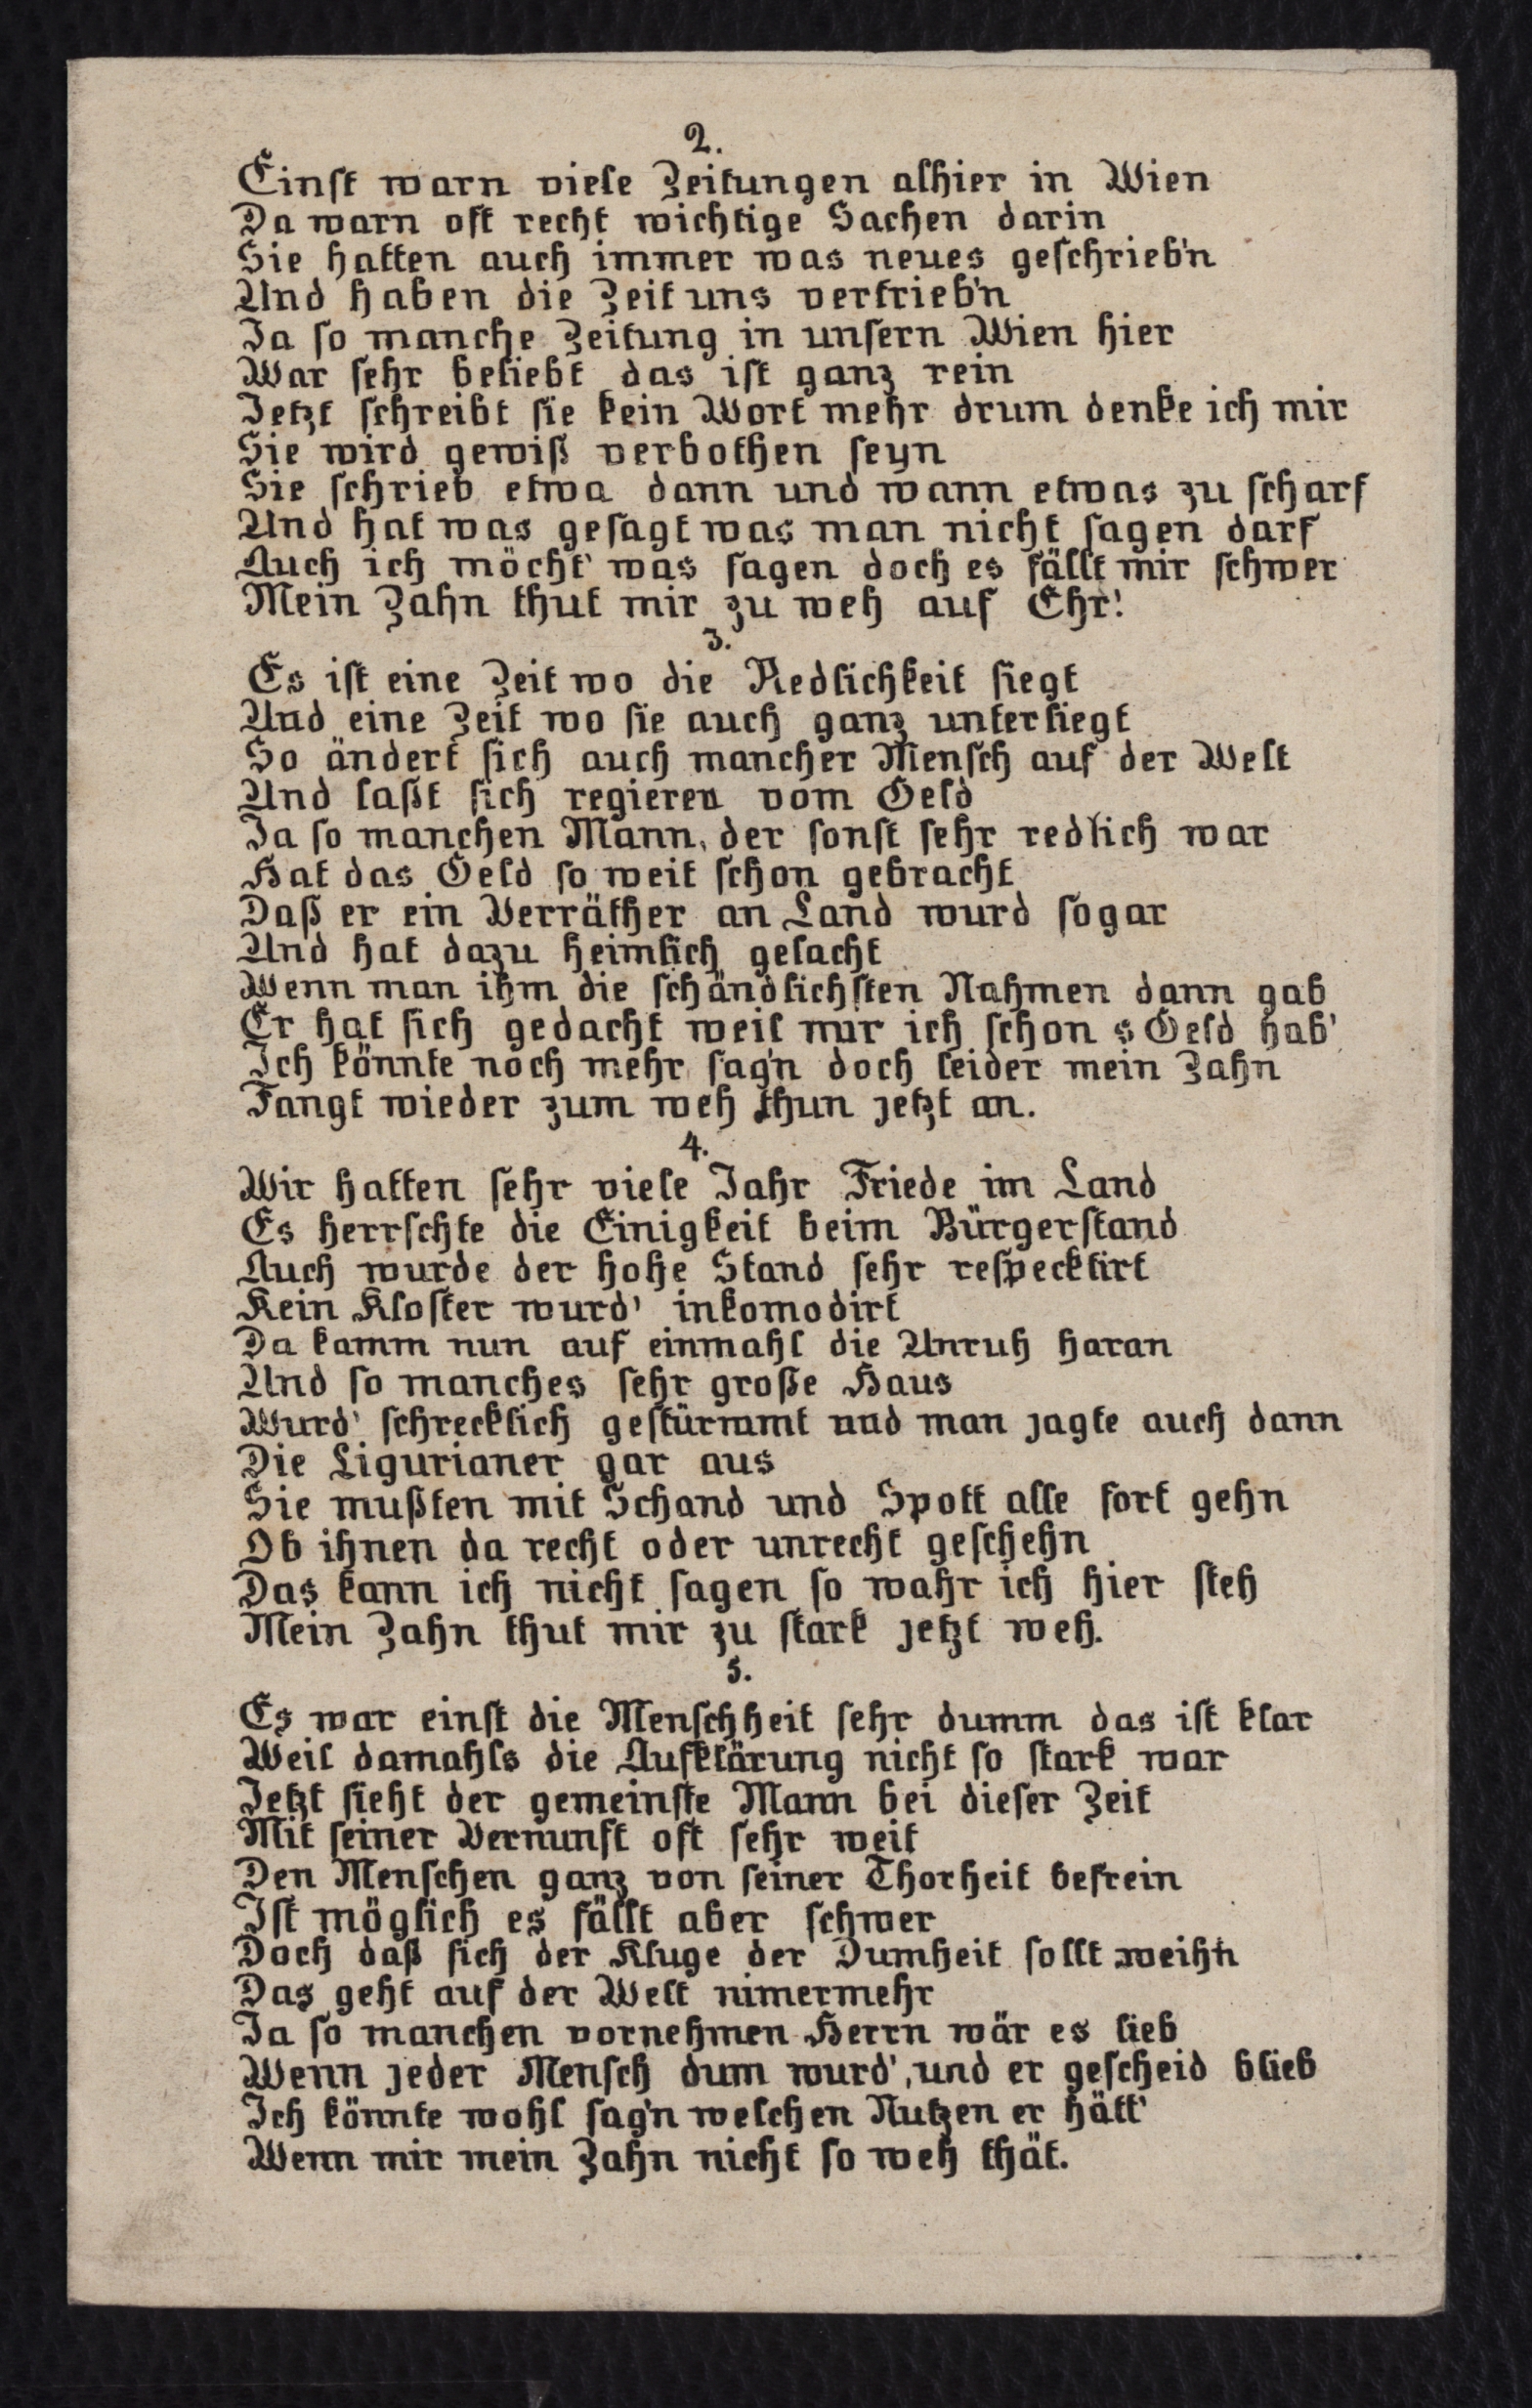 2.
Einſt warn viele Zeitungen alhier in Wien
Da warn oft recht wichtige Sachen darin
Sie hatten auch immer was neues geſchrieb'n
Und haben die Zeit uns vertrieb'n
Ja ſo manche Zeitung in unſern Wien hier
War ſehr beliebt das iſt ganz rein
Jetzt ſchreibt ſie kein Wort mehr drum denke ich mir
Sie wird gewiß verbothen ſeyn
Sie ſchrieb etwa dann und wann etwas zu ſcharf
Und hat was geſagt was man nicht ſagen darf
Auch ich möcht' was ſagen doch es fällt mir ſchwer
Mein Zahn thut mir zu weh auf Ehr'!
3.
Es iſt eine Zeit wo die Redlichkeit ſiegt
Und eine Zeit wo ſie auch ganz unterliegt
So ändert ſich auch mancher Menſch auf der Welt
Und laßt ſich regieren vom Geld
Ja ſo manchen Mann, der ſonſt ſehr redlich war
Hat das Geld ſo weit ſchon gebracht
Daß er ein Verräther an Land wurd ſogar
Und hat dazu heimlich gelacht
Wenn man ihm die ſchändlichſten Nahmen dann gab
Er hat ſich gedacht weil nur ich ſchon s Geld hab'
Ich könnte noch mehr ſag'n doch leider mein Zahn
Fangt wieder zum weh thun jetzt an.
4.
Wir hatten ſehr viele Jahr Friede im Land
Es herrſchte die Einigkeit beim Bürgerſtand
Auch wurde der hohe Stand ſehr reſpecktirt
Kein Kloſter wurd' inkomodirt
Da kamm nun auf einmahl die Unruh haran
Und ſo manches ſehr große Haus
Wurd' ſchrecklich geſtürmmt und man jagte auch dann
Die Ligurianer gar aus
Sie mußten mit Schand und Spott alle fort gehn
Ob ihnen da recht oder unrecht geſchehn
Das kann ich nicht ſagen ſo wahr ich hier ſteh
Mein Zahn thut mir zu ſtark jetzt weh.
5.
Es war einſt die Menſchheit ſehr dumm das iſt klar
Weil damahls die Aufklärung nicht ſo ſtark war
Jetzt ſieht der gemeinſte Mann bei dieſer Zeit
Mit ſeiner Vernunft oft ſehr weit
Den Menſchen ganz von ſeiner Thorheit befrein
Iſt möglich es fällt aber ſchwer
Doch daß ſich der Kluge der Dumheit ſollt weih'n
Das geht auf der Welt nimermehr
Ja ſo manchen vornehmen Herrn wär es lieb
Wenn jeder Menſch dum wurd', und er geſcheid blieb
Ich könnte wohl ſag'n welchen Nutzen er hätt'
Wenn mir mein Zahn nicht ſo weh thät.